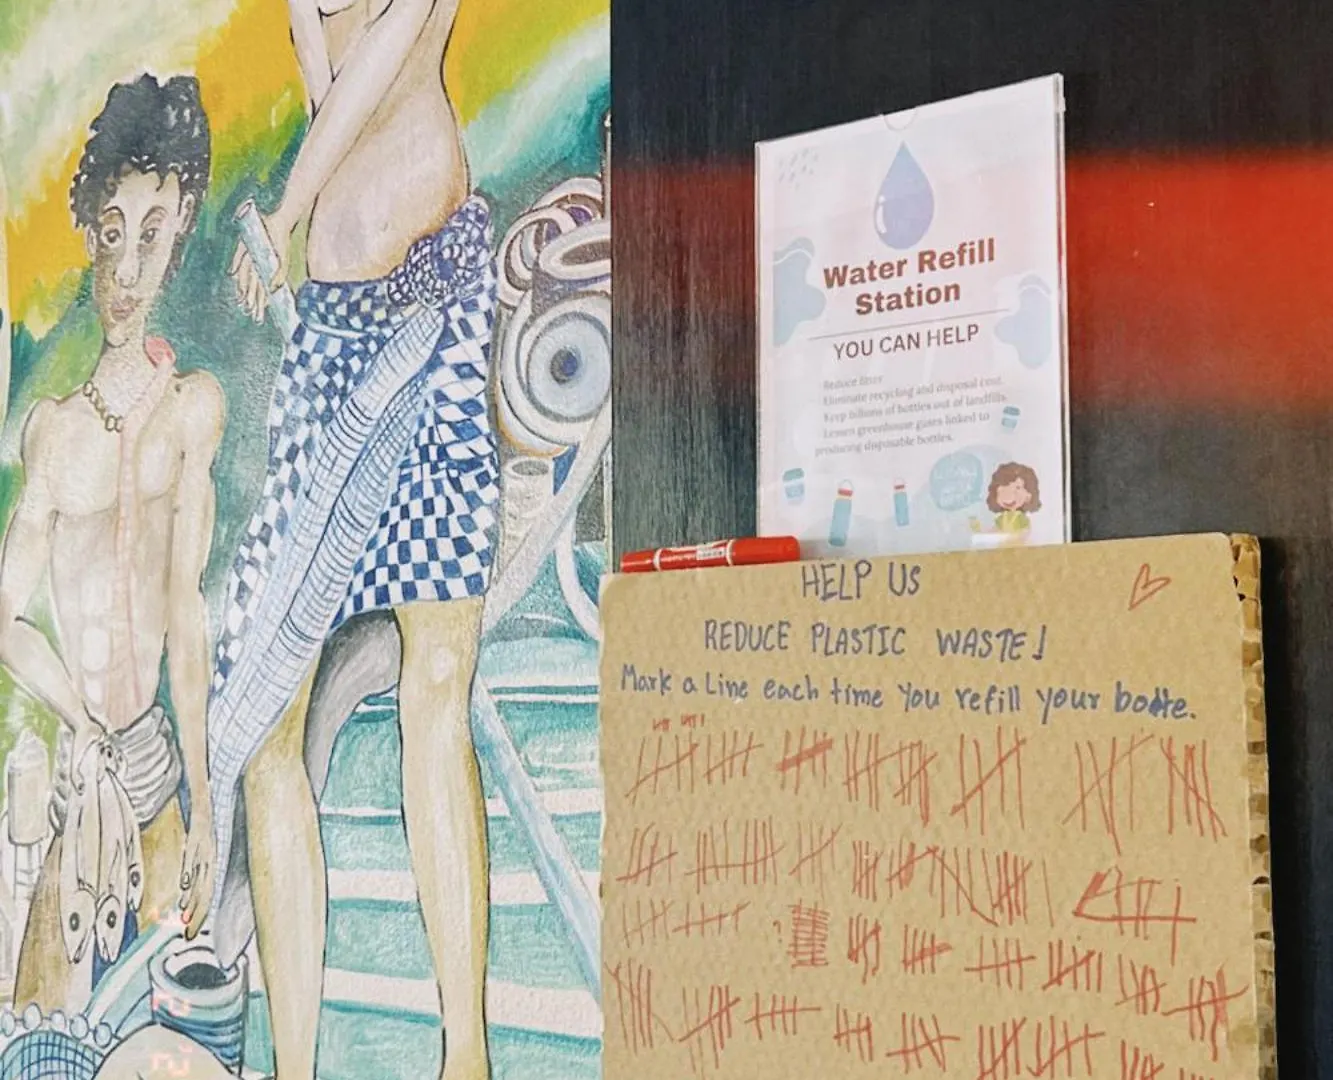 Water Refill
Station
YOU CAN HELP
Reduce litter
Eliminate recycling and disposal cost.
Keep billions of bottles out of landfills.
Lessen greenhouse gases linked to
producing disposable bottles.
HELP US
REDUCE PLASTIC WASTE!
Mark a Line each time you refill your bottle.